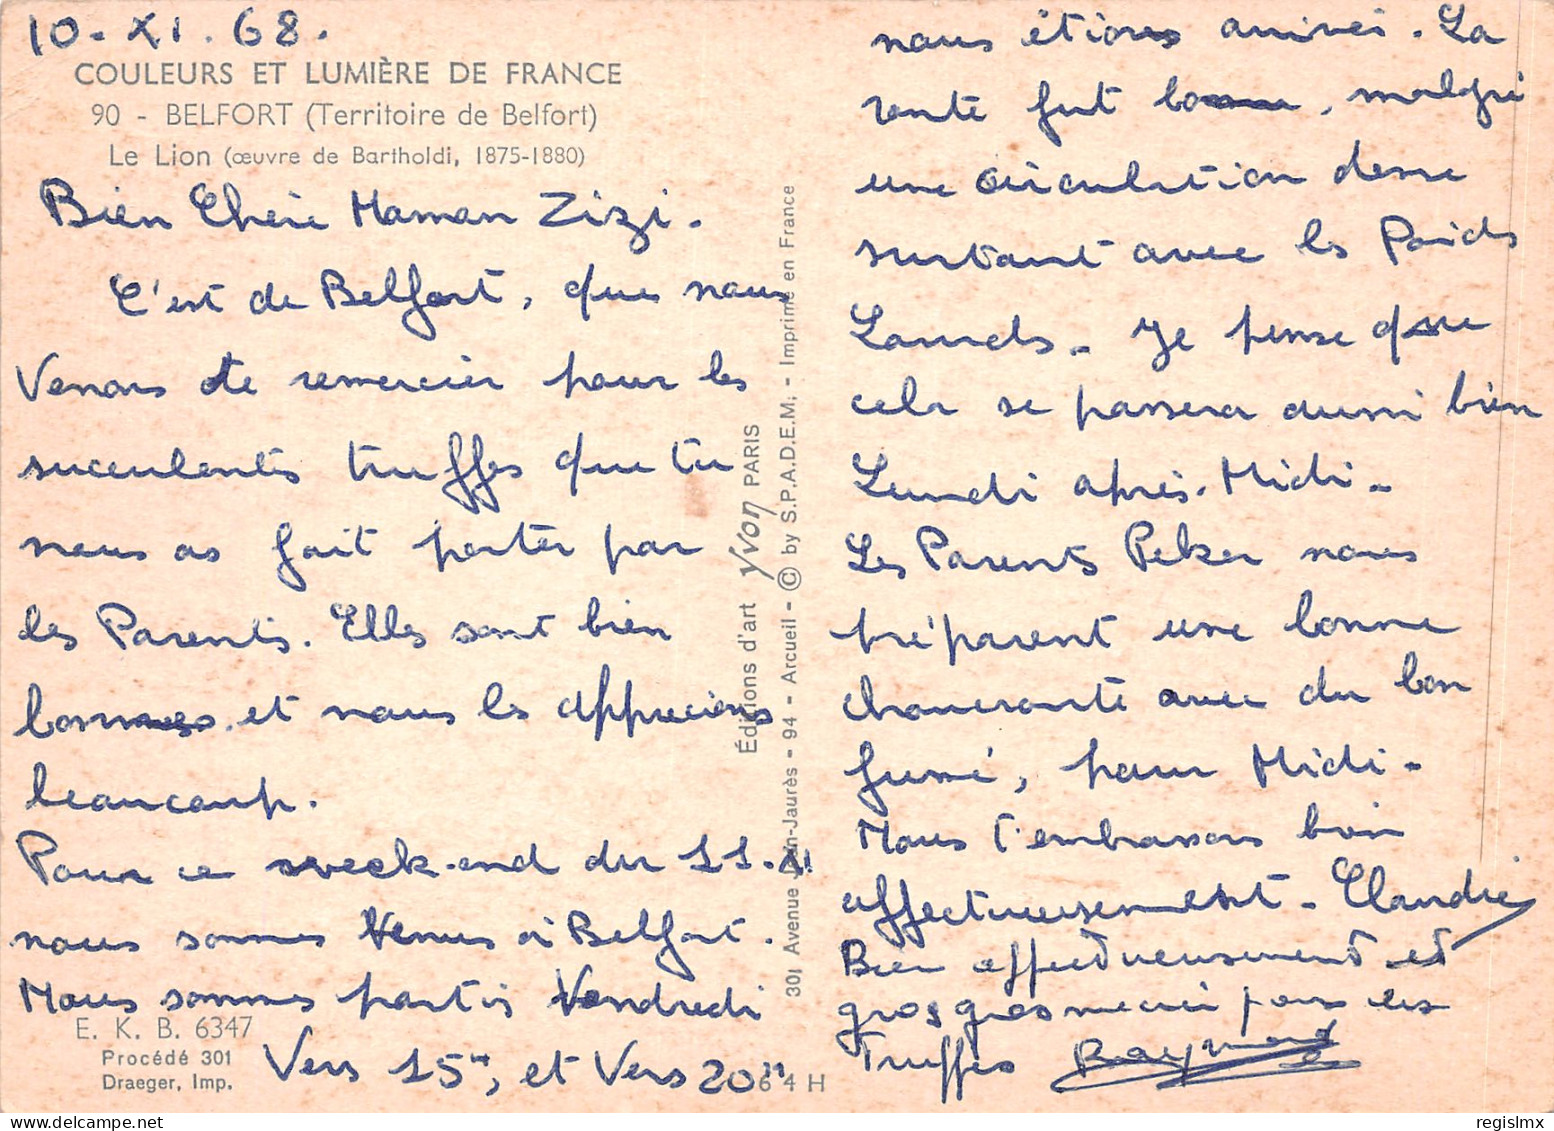 10-XI.68.
COULEURS ET LUMIÈRE DE FRANCE
90 - BELFORT (Territoire de Belfort)
Le Lion (œuvre de Bartholdi, 1875-1880)
Bien Chère Maman Zizi.
C'est de Belfort, que nous
Venons te remercier pour les
succulentes truffes que tu
nous as fait porter par
les Parents. Elles sont bien
bonnes et nous les apprecions
beaucoup.
Pour ce week-end du 11.XI
nous sommes Venus à Belfort.
Nous sommes partis Vendredi
Vers 15H, et Vers 20H
E. K. B. 6347
Procédé 301
Draeger, Imp.
Éditions d'art yvon PARIS
301 Avenue Jean-Jaurès - 94 - Arcueil - © by S.P.A.D.E.M. - Imprimé en France
64 H
nous étions arrivés. La
route fut bonne, malgré
une circulation dense
surtout avec les Poids
Lourds. Je pense que
cela se passera aussi bien
Lundi après-Midi.
Les Parents Pelzer nous
préparent une bonne
choucroute avec du bon
fumé, pour Midi.
Nous t'embrassons bien
affectueusement. Claudie
Bien affectueusement et
gros gros merci pour les
Truffes Raymond
regislmx